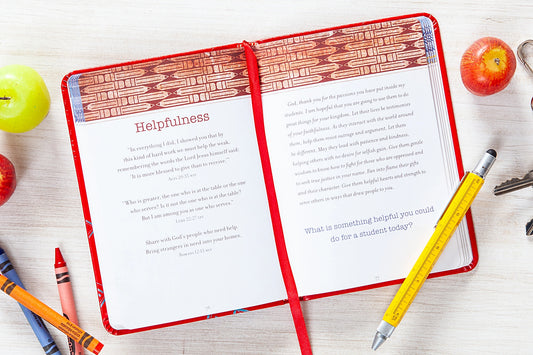 Helpfulness
"In everything I did, I showed you that by
this kind of hard work we must help the weak,
remembering the words the Lord Jesus himself said:
'It is more blessed to give than to receive.'"
Acts 20:35 NIV
"Who is greater, the one who is at the table or the
one who serves? Is it not the one who is at the table?
But I am among you as one who serves."
Luke 22:27 NIV
Share with God's people who need help.
Bring strangers in need into your homes.
Romans 12:13 NCV
God, thank you for the passions you have put inside my
students. I am hopeful that you are going to use them to do
great things for your kingdom. Let their lives be testimonies
of your faithfulness. As they interact with the world around
them, help them must outrage and argument. Let them
be different. May they lead with patience and kindness,
helping others with no desire for selfish gain. Give them
wisdom to know how to fight for those who are oppressed and
to seek true justice in your name. But into flame their gifts
and their character. Give them helpful hearts and strength to
serve others in ways that draw people to you.
What is something helpful you could
do for a student today?